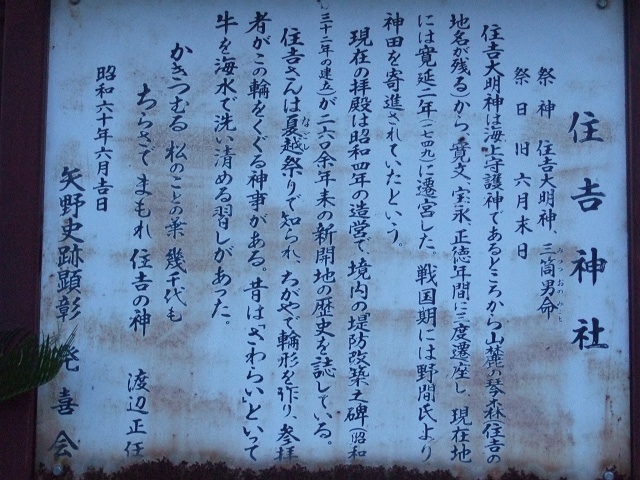 住吉神社
祭神 住吉大明神、三筒男命
みつつおのみこと
祭日 旧六月末日
住吉大明神は海上守護神であるところから山麓の琴森(住吉の
地名が残る)から、寛文、宝永、正徳年間に三度遷座し、現在地
には寛延二年(一七四九)に遷宮した。戦国期には野間氏より
神田を寄進されていたという。
現在の拝殿は昭和四年の造営で、境内の堤防改築之碑(昭和
三十二年の建立)が二六〇余年来の新開地の歴史を誌している。
住吉さんは夏越祭りで知られ、ちがやで輪形を作り、参拝
なごし
者がこの輪をくぐる神事がある。昔は「さわらい」といって
牛を海水で洗い清める習しがあった。
かきつむる 松のことの葉 幾千代も
ちらさで まもれ 住吉の神
渡辺正任
昭和六十年六月吉日
矢野史跡顕彰 発喜会